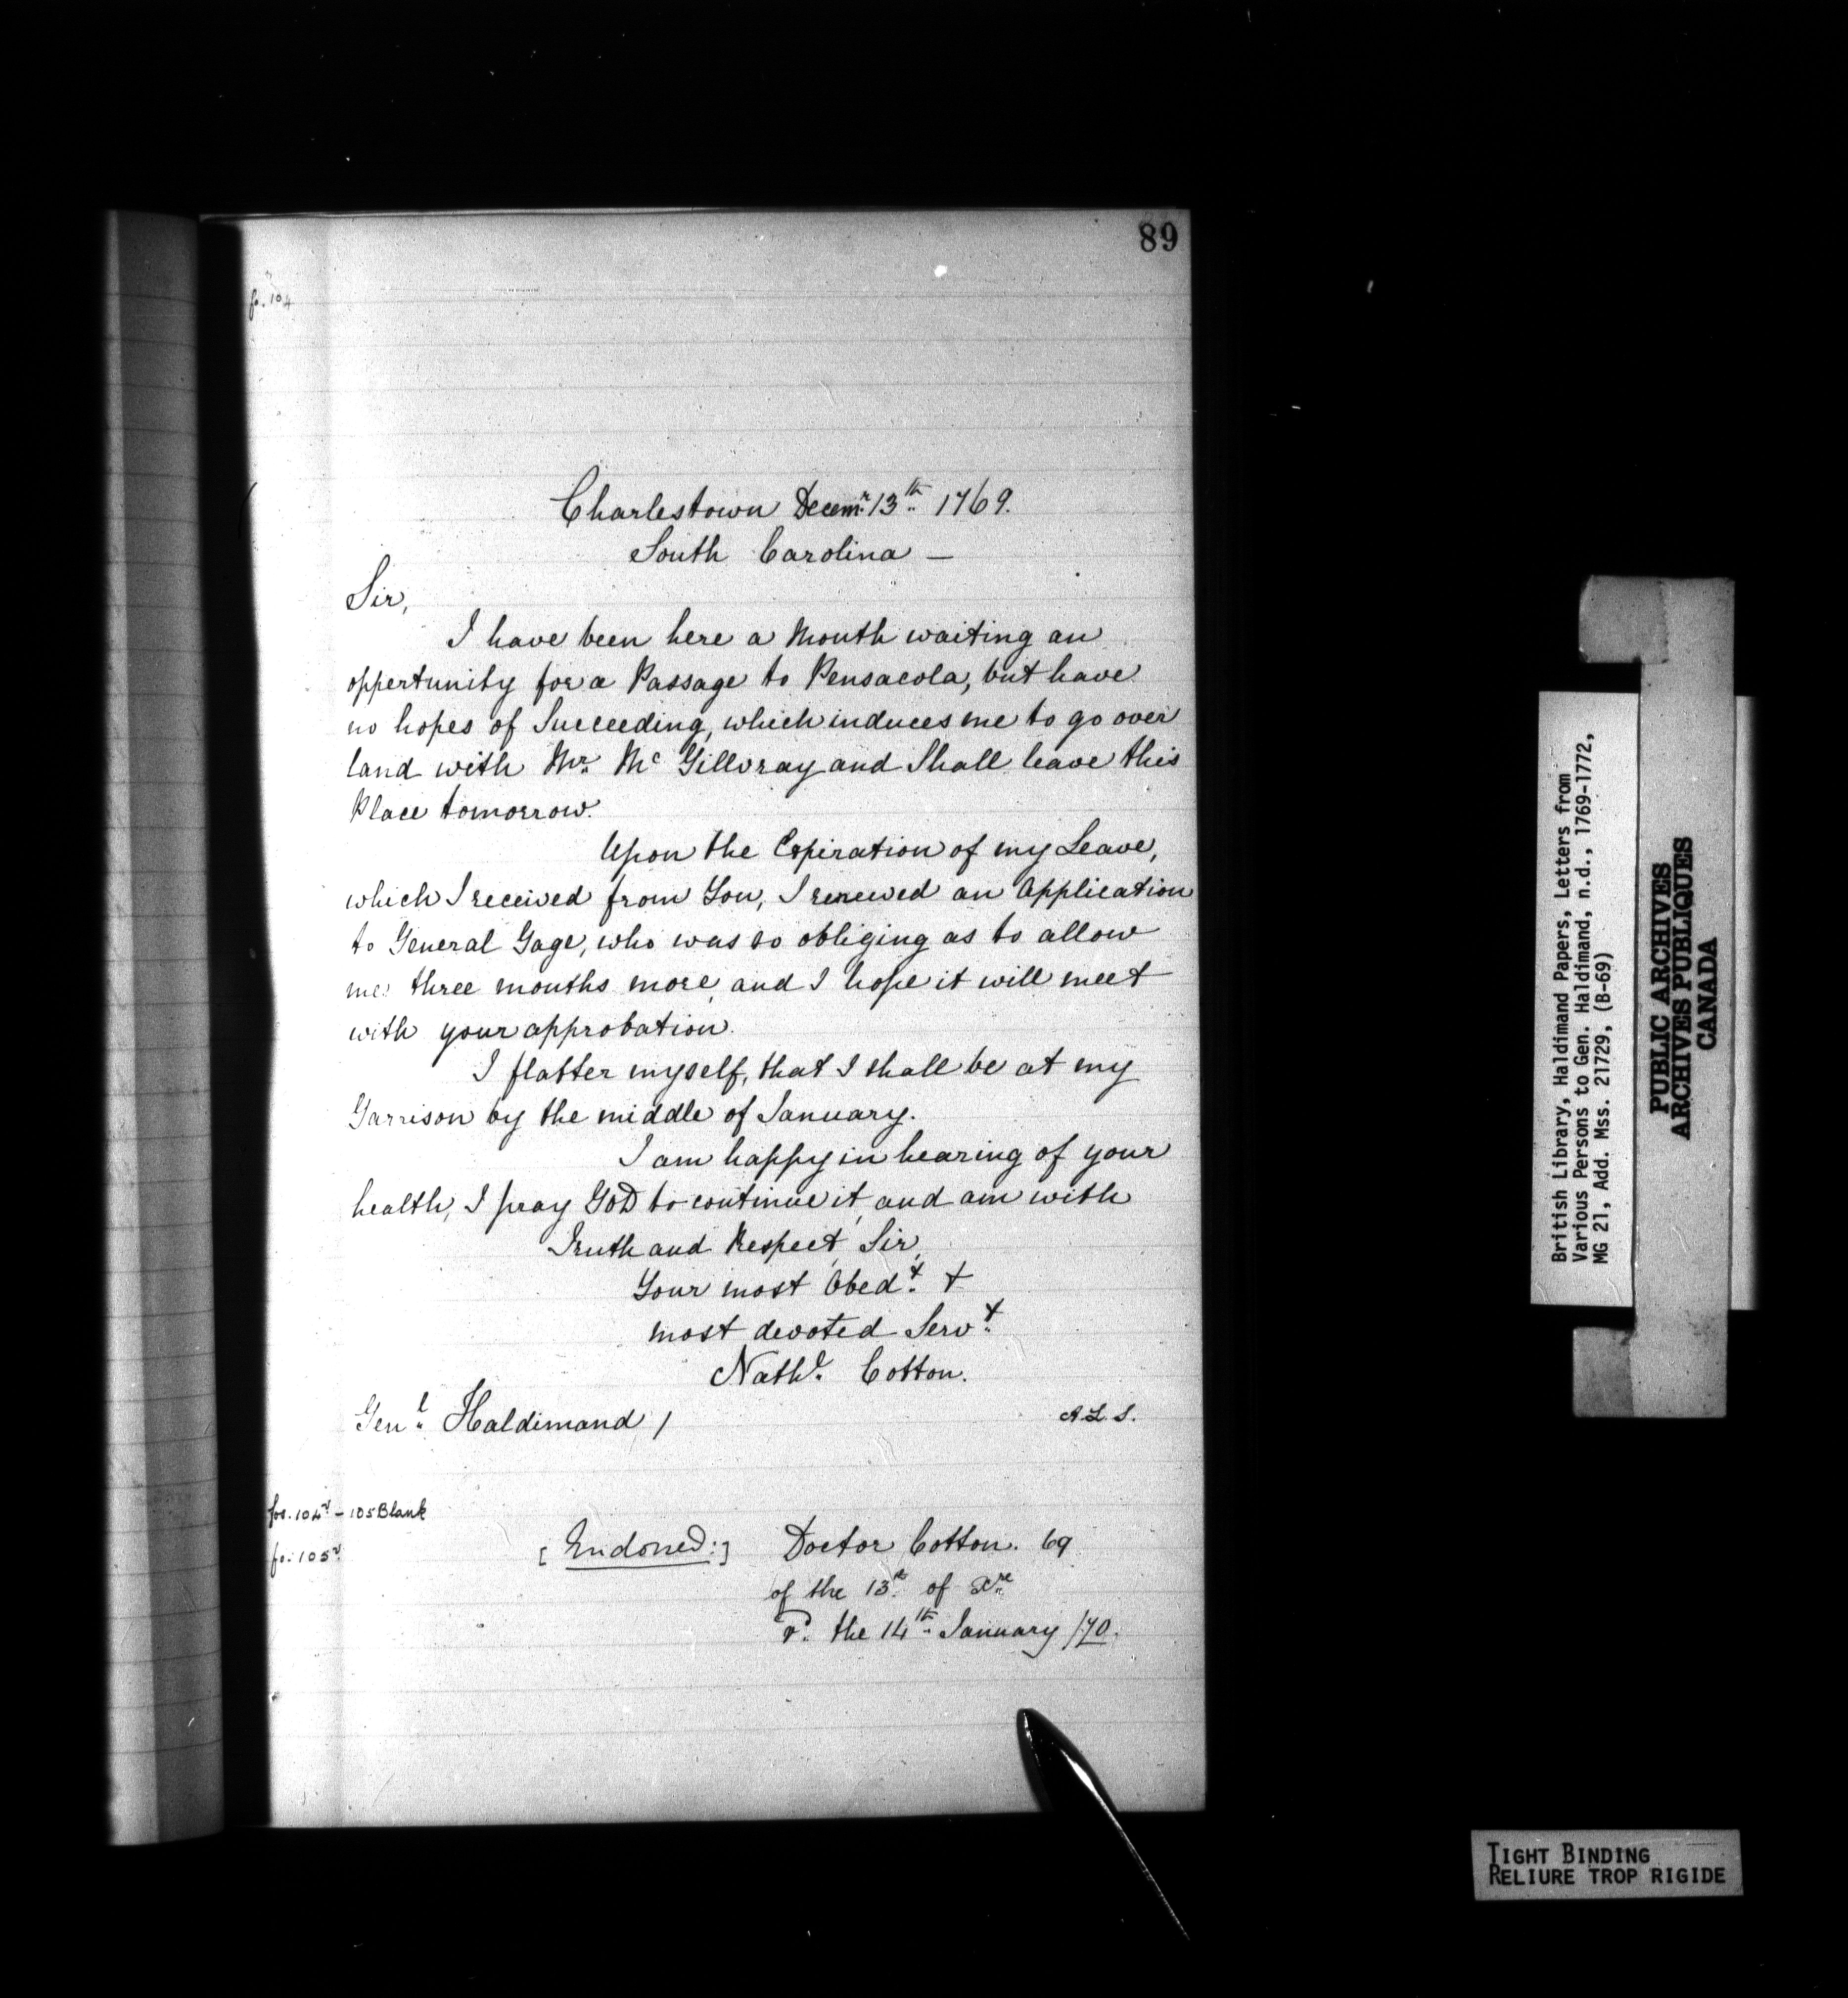 89
fo. 104
Charlestown Decemr. 13th. 1769.
South Carolina —
Sir,
I have been here a Month waiting an
oppertunity for a Passage to Pensacola, but have
no hopes of Succeeding, which induces me to go over
land with Mr. Mc Gillvray and Shall leave this
Place tomorrow.
Upon the Expiration of my Leave,
which I received from You, I renewed an Application
to General Gage, who was so obliging as to allow
me three months more, and I hope it will meet
with your approbation.
I flatter myself, that I shall be at my
Garrison by the middle of January.
I am happy in hearing of your
health, I pray GOD to continue it, and am with
Truth and Respect, Sir,
Your most Obedt. &
most devoted Servt.
Nathl. Cotton.
Genl. Haldimand /
A.L.S.
fos. 104v - 105 Blank
fo. 105v.
[Endorsed:] Doctor Cotton. 69
of the 13th of Xre
rd. the 14th. January /70.
British Library, Haldimand Papers, Letters from
Various Persons to Gen. Haldimand, n.d., 1769-1772,
MG 21, Add. Mss. 21729, (B-69)
PUBLIC ARCHIVES
ARCHIVES PUBLIQUES
CANADA
TIGHT BINDING
RELIURE TROP RIGIDE